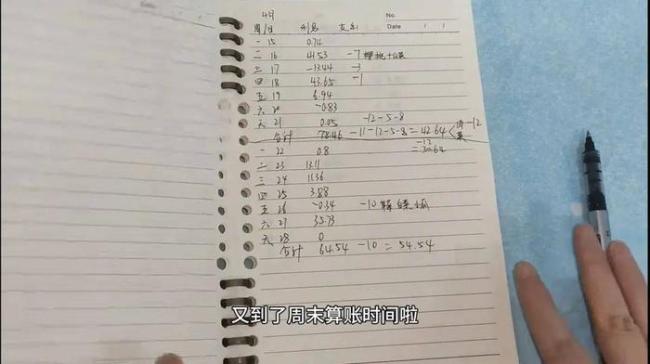 4月 No.
周/日 利息 支出 Date / /
一 15 0.74
二 16 41.53 -7
三 17 -13.44 -3
四 18 43.65 -1
五 19 6.94
六 20 -0.83
天 21 0.05 -12-5-8
合计 78.46 -11-12-5-8=42.64 -12
-12
=30.64
一 22 0.8
二 23 13.11
三 24 11.36
四 25 3.88
五 26 -0.34 -10
六 27 35.73
天 28 0
合计 64.54 -10 = 54.54
又到了周末算账时间啦